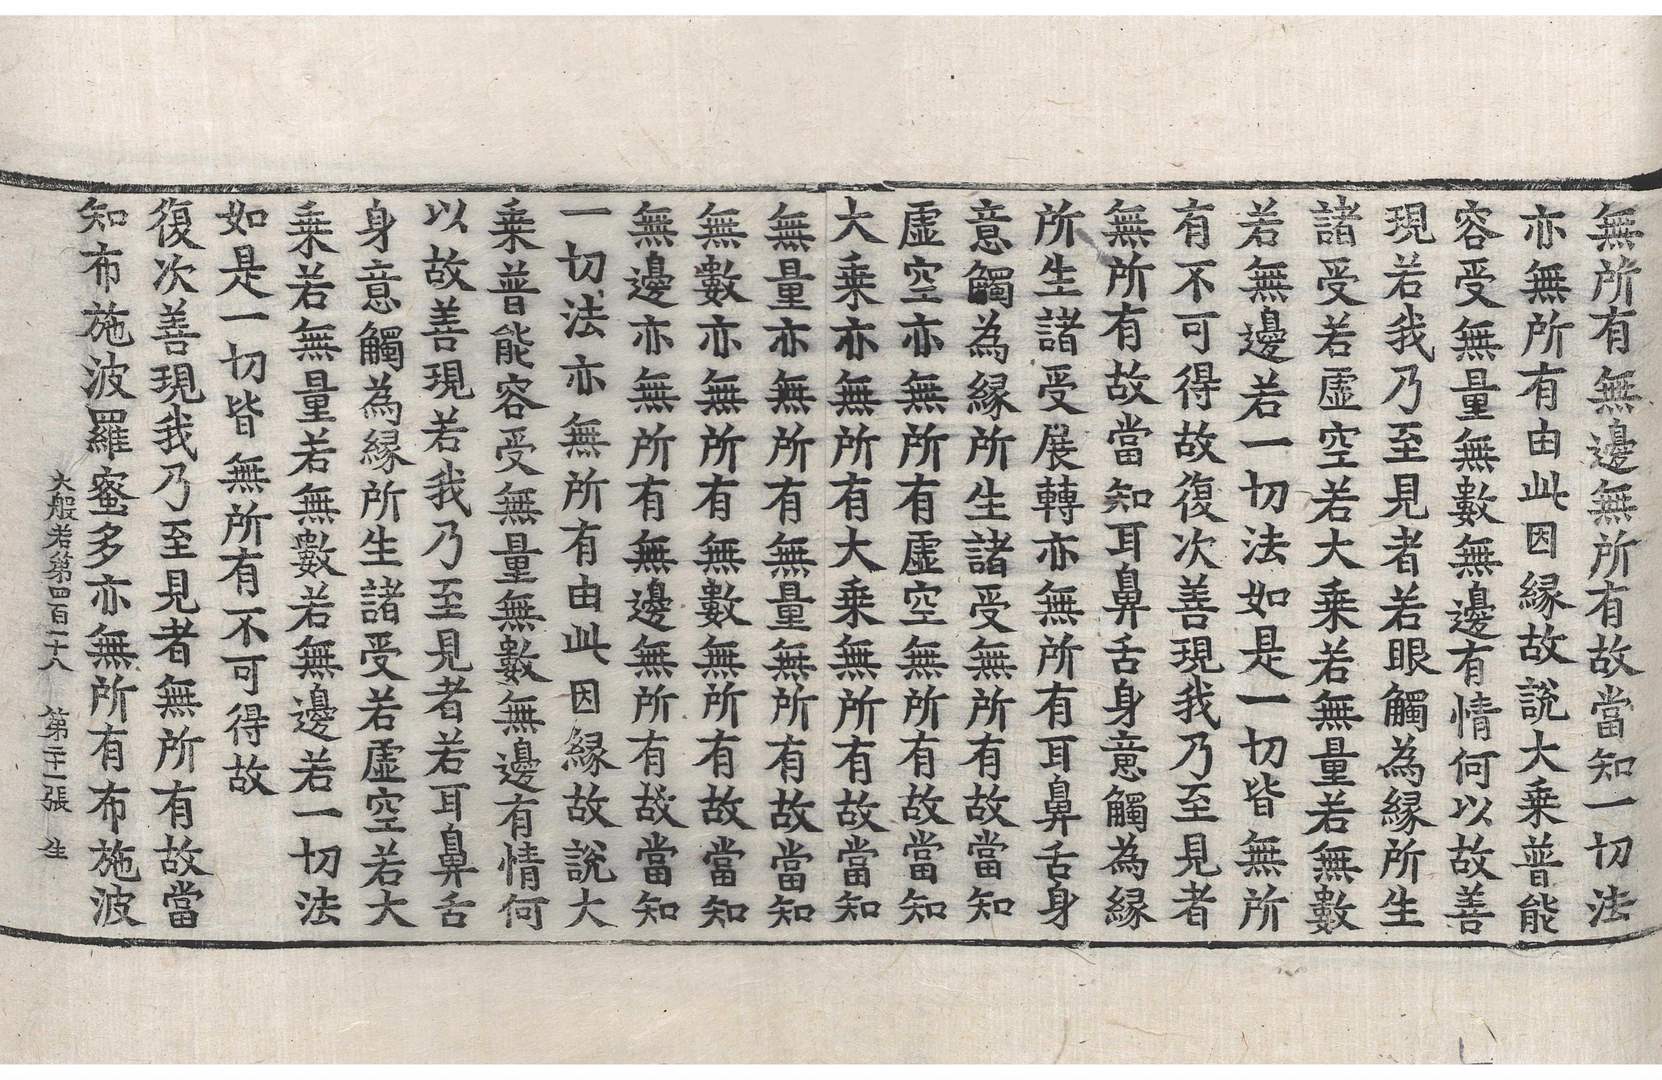 無所有無邊無所有故當知一切法
亦無所有由此因縁故說大乗普能
容受無量無數無邊有情何以故善
現若我乃至見者若眼觸為縁所生
諸受若虛空若大乗若無量若無數
若無邊若一切法如是一切皆無所
有不可得故復次善現我乃至見者
無所有故當知耳鼻舌身意觸為縁
所生諸受展轉亦無所有耳鼻舌身
意觸為縁所生諸受無所有故當知
虛空亦無所有虛空無所有故當知
大乗亦無所有大乗無所有故當知
無量亦無所有無量無所有故當知
無數亦無所有無數無所有故當知
無邊亦無所有無邊無所有故當知
一切法亦無所有由此因縁故說大
乗普能容受無量無數無邊有情何
以故善現若我乃至見者若耳鼻舌
身意觸為縁所生諸受若虛空若大
乗若無量若無數若無邊若一切法
如是一切皆無所有不可得故
復次善現我乃至見者無所有故當
知布施波羅蜜多亦無所有布施波
大般若第四百一十八 第二十一張 生